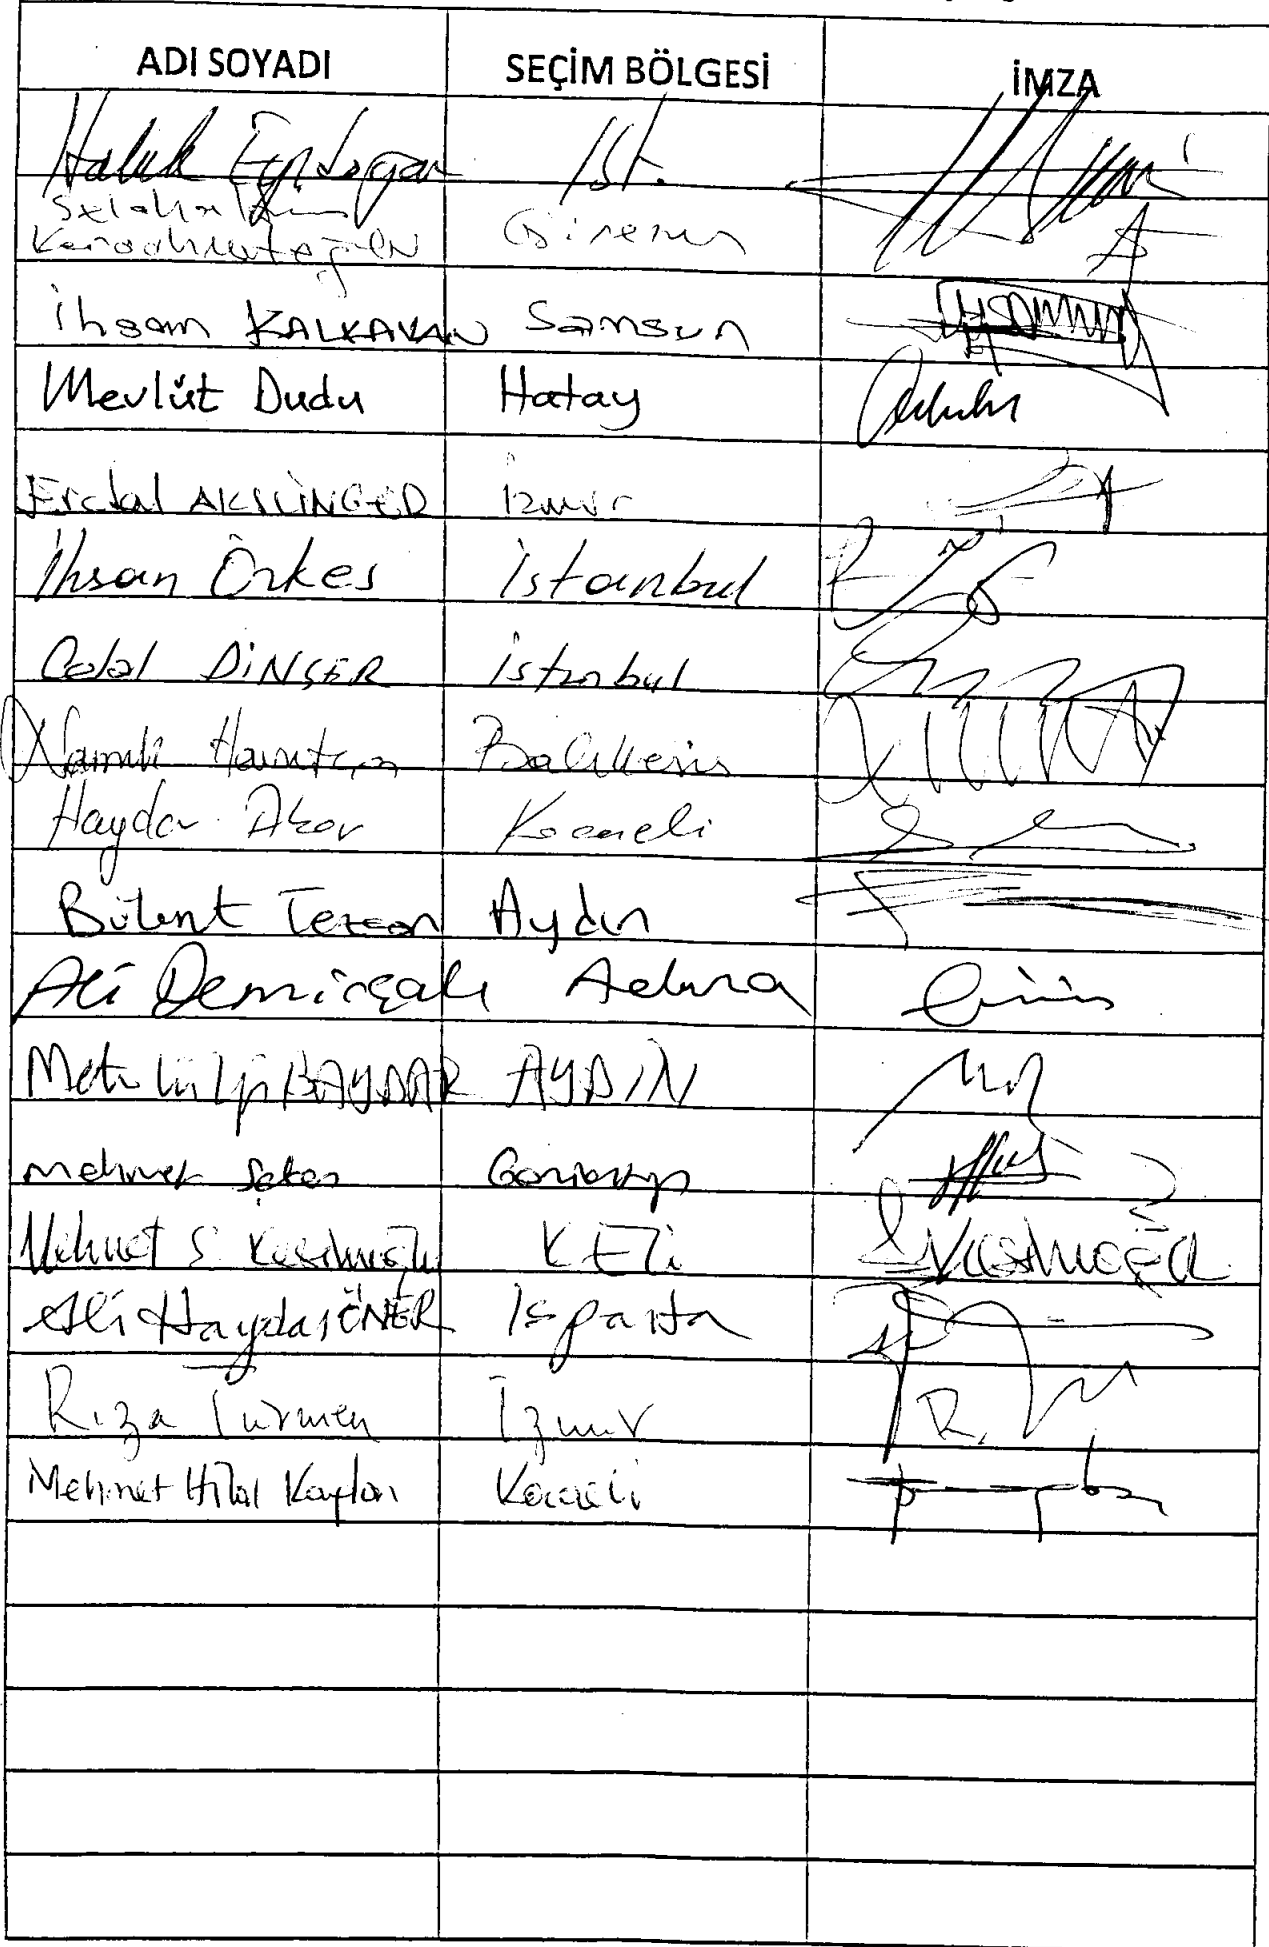 ADI SOYADI SEÇİM BÖLGESİ İMZA
Haluk Eyidoğan İst.
Selahattin
Karaahmetoğlu Giresun
İhsan KALKAVAN Samsun
Mevlüt Dudu Hatay
Erdal AKSÜNGER İzmir
İhsan Özkes İstanbul
Celal DİNÇER İstanbul
Namık Havutça Balıkesir
Haydar Akar Kocaeli
Bülent Tezcan Aydın
Ali Demirçalı Adana
Metin Lütfi BAYDAR AYDIN
Mehmet Şeker Gaziantep
Mehmet S. Kesimoğlu K.Eli
Ali Haydar ÖNER Isparta
Rıza Türmen İzmir
Mehmet Hilal Kaplan Kocaeli